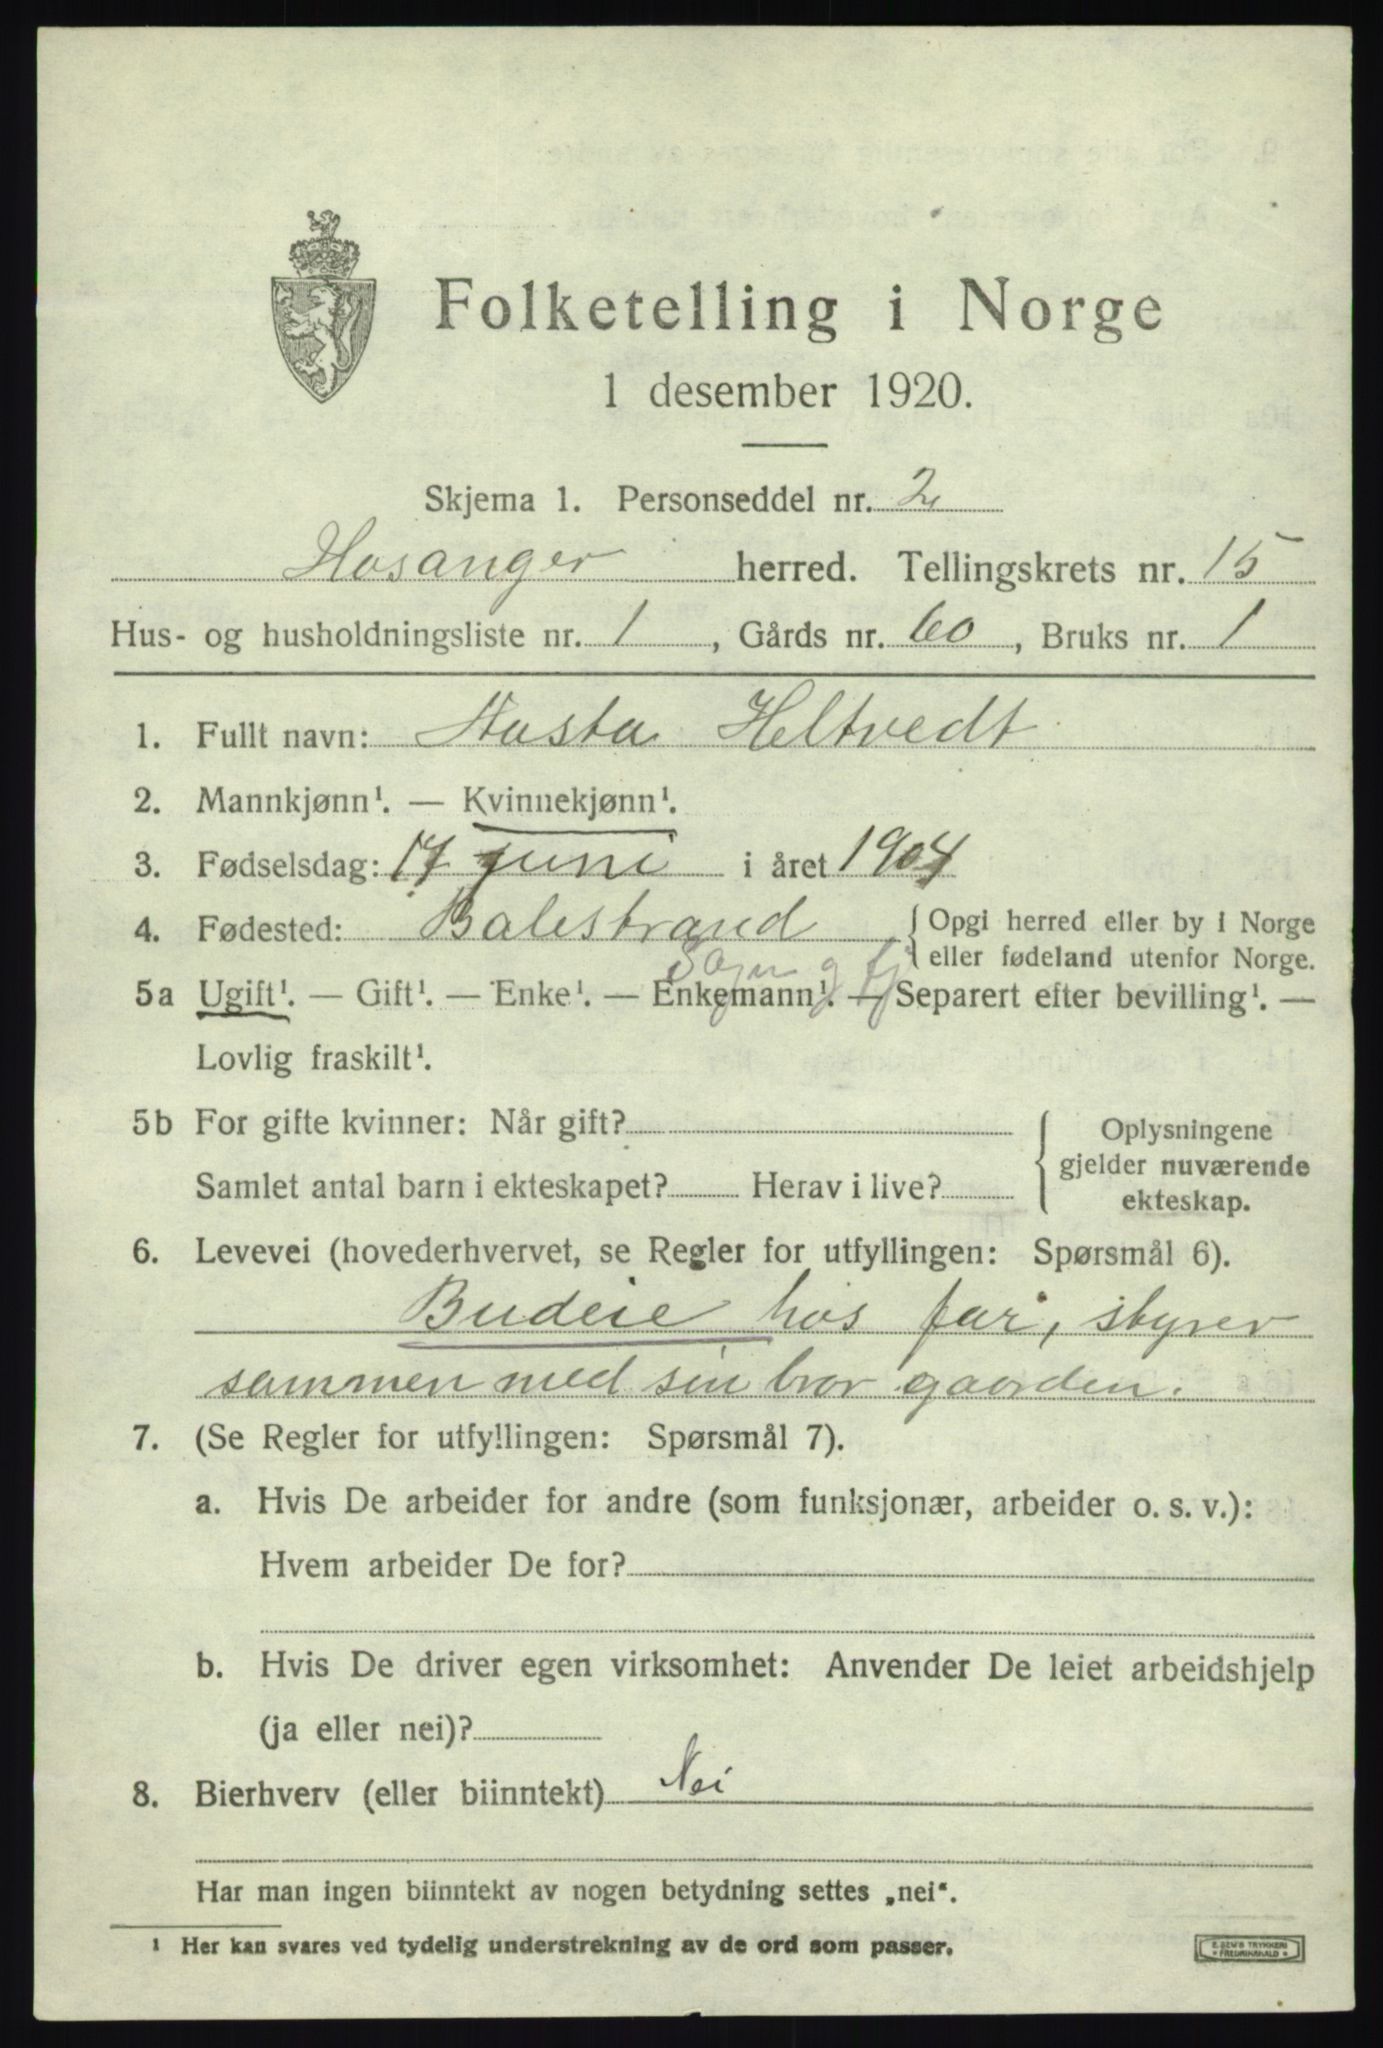 Folketelling i Norge
1 desember 1920.
Skjema 1. Personseddel nr. 2
Hosanger herred. Tellingskrets nr. 15
Hus- og husholdningsliste nr. 1, Gårds nr. 60, Bruks nr. 1
1. Fullt navn: Aasta Heltvedt
2. Mannkjønn¹. — Kvinnekjønn¹.
3. Fødselsdag: 17 juni i året 1904
4. Fødested: Balestrand { Opgi herred eller by i Norge
eller fødeland utenfor Norge.
Sogn og Fj
5a Ugift¹. — Gift¹. — Enke¹. — Enkemann¹. — Separert efter bevilling¹. —
Lovlig fraskilt¹.
5b For gifte kvinner: Når gift? { Oplysningene
gjelder nuværende
Samlet antal barn i ekteskapet? Herav i live? ekteskap.
6. Levevei (hovederhvervet, se Regler for utfyllingen: Spørsmål 6).
Budeie hos far, styrer
sammen med sin bror gaarden.
7. (Se Regler for utfyllingen: Spørsmål 7).
a. Hvis De arbeider for andre (som funksjonær, arbeider o. s. v.):
Hvem arbeider De for?
b. Hvis De driver egen virksomhet: Anvender De leiet arbeidshjelp
(ja eller nei)?
8. Bierhverv (eller biinntekt) Nei
Har man ingen biinntekt av nogen betydning settes „nei“.
¹ Her kan svares ved tydelig understrekning av de ord som passer.
TRYKKERI
FREDRIKSHALD